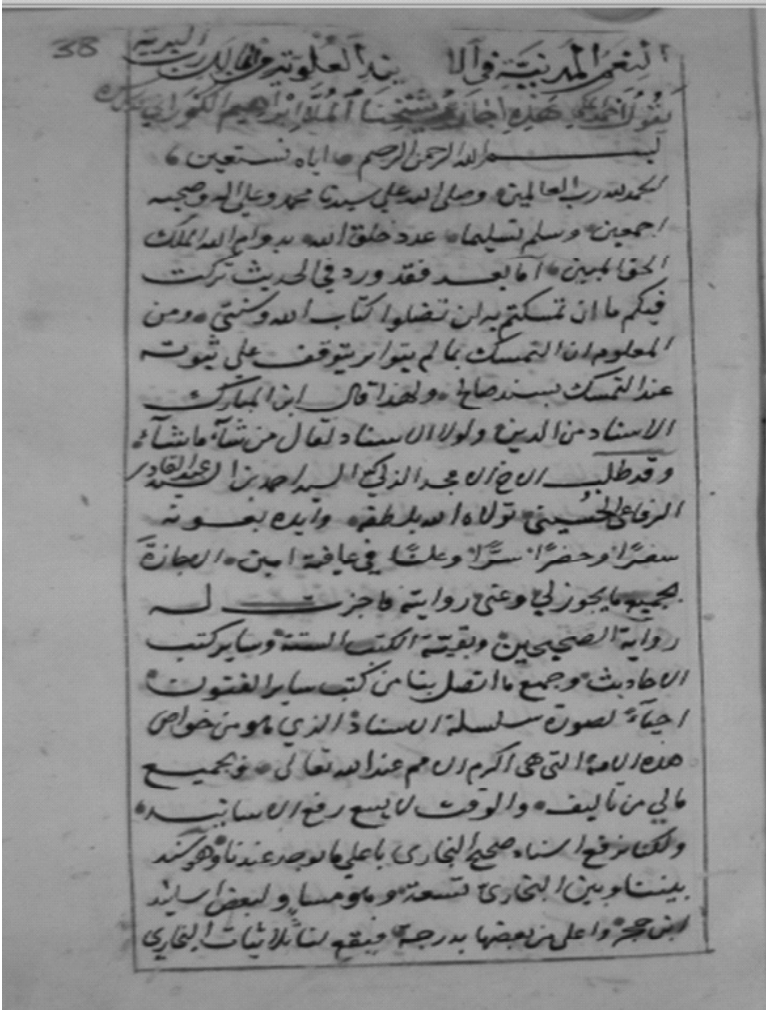 38
النعم المدنية في الا يد العلوية من مالك رب البرية
يقول احمد هذه اجازة شيخنا الملا ابراهيم الكوراني
بسم الله الرحمن الرحيم اياه نستعين
الحمد لله رب العالمين وصلى الله على سيدنا محمد وعلى اله وصحبه
اجمعين وسلم تسليما عدد خلق الله بدوام الله الملك
الحق المبين اما بعد فقد ورد في الحديث تركت
فيكم ما ان تمسكتم به لن تضلوا كتاب الله وسنتي ومن
المعلوم ان التمسك بما لم يتواتر يتوقف على ثبوته
عند التمسك بسند صالح ولهذا قال ابن المبارك
الاسناد من الدين ولولا الاسناد لقال من شآء ما شآء
وقد طلب الاخ الامجد الذكي السيد احمد بن السيد عبد القادر
الرفاعي الحسيني تولاه الله بلطفه وايده بعونه
سفرًا وحضرًا سرًّا وعلنًا في عافية امين الاجازة
بجميع ما يجوز لي وعني روايته فاجزت له
رواية الصحيحين وبقية الكتب الستة وساير كتب
الاحاديث وجمع ما اتصل بنا من كتب ساير الفنون
احيآء لصورة سلسلة الاسناد الذي هو من خواص
هذه الامة التي هي اكرم الامم عند الله تعالى وبجميع
مالي من تاليف والوقت لا يسع رفع الاسانيد
ولكنا نرفع اسناد صحيح البخاري باعلى ما يوجد عندنا وهو سند
بيننا وبين البخاري تسعة وهو مساو لبعض اسانيد
ابن حجر واعلى من بعضها بدرجة فيقع لنا ثلاثيات البخاري